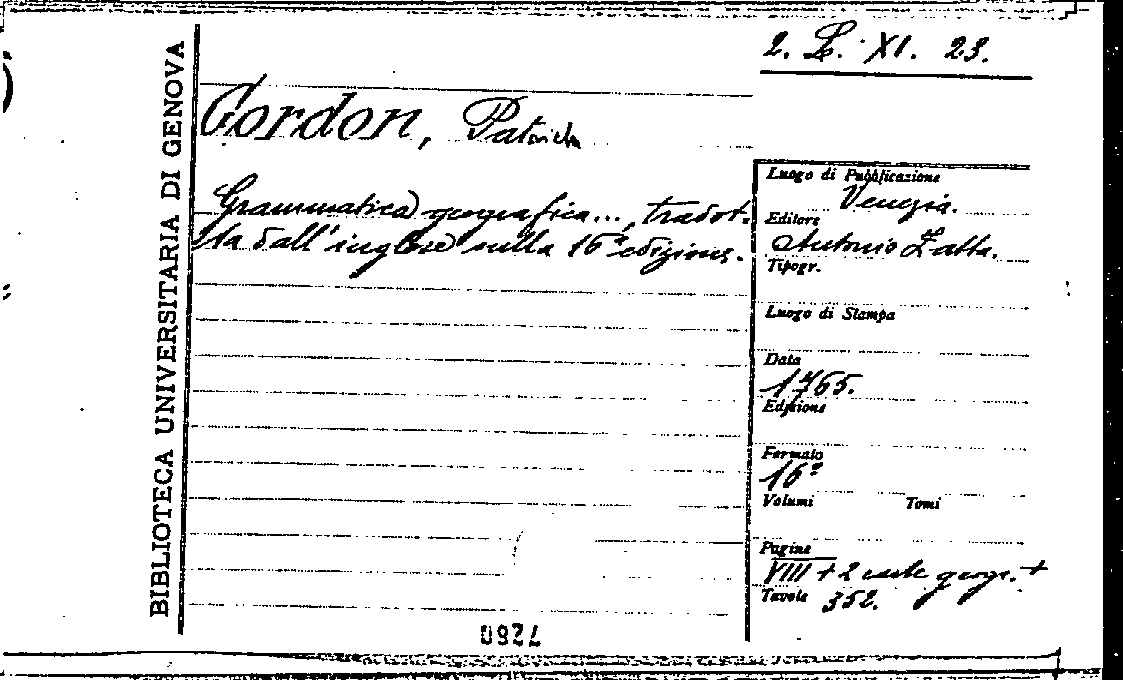 2. L. XI. 23.
BIBLIOTECA UNIVERSITARIA DI GENOVA
Gordon, Patrick
Grammatica geografica..., tradot-
ta dall'inglese sulla 16ª edizione.
Luogo di Pubblicazione
Venezia.
Editore
Antonio Zatta.
Tipogr.
Luogo di Stampa
Data
1765.
Edizione
Formato
16º
Volumi Tomi
Pagine
VIII + 2 carte geogr. +
Tavole 352.
7280